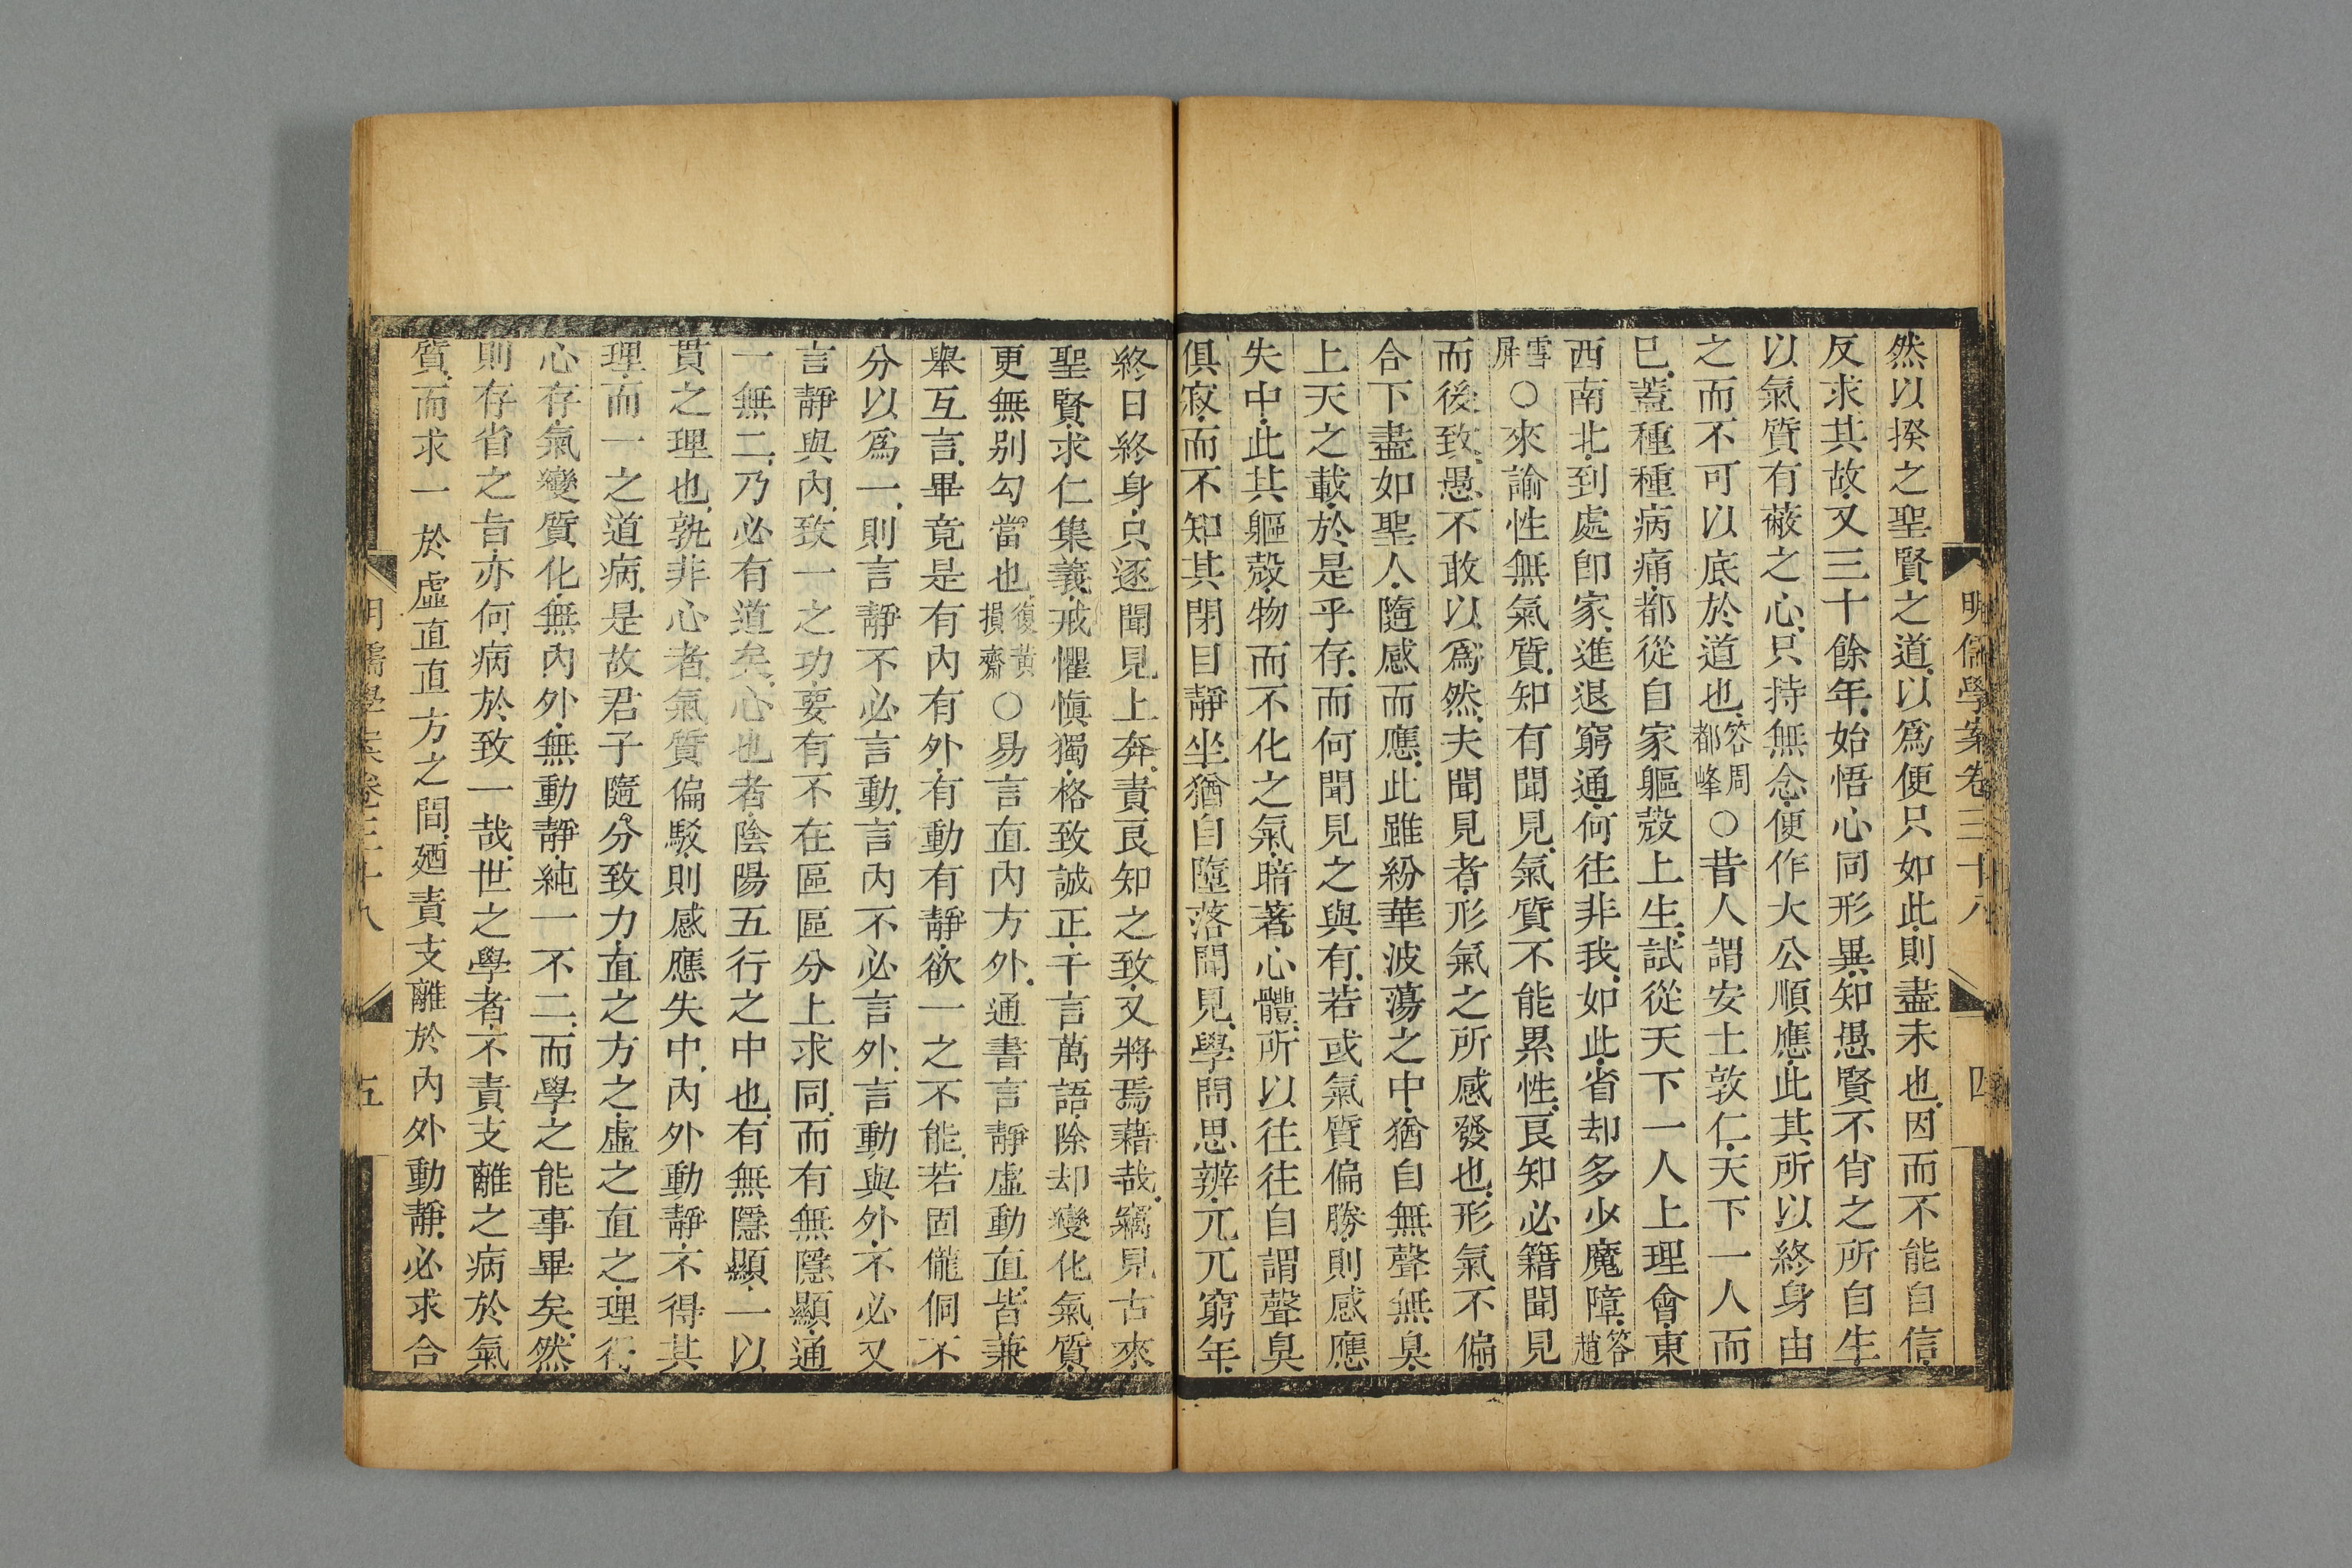 明儒學案卷三十八
四
然以揆之聖賢之道以爲便只如此則盡未也因而不能自信
反求其故又三十餘年始悟心同形異知愚賢不肖之所自生
以氣質有蔽之心只持無念便作大公順應此其所以終身由
之而不可以底於道也答周都峰○昔人謂安土敦仁天下一人而
已蓋種種病痛都從自家軀殼上生試從天下一人上理會東
西南北到處卽家進退窮通何往非我如此省却多少魔障答趙
雪屏○來諭性無氣質知有聞見氣質不能累性良知必籍聞見
而後致愚不敢以爲然夫聞見者形氣之所感發也形氣不偏
合下盡如聖人隨感而應此雖紛華波蕩之中猶自無聲無臭
上天之載於是乎存而何聞見之與有若或氣質偏勝則感應
失中此其軀殼物而不化之氣暗著心體所以往往自謂聲臭
俱寂而不知其閉目靜坐猶自墮落聞見學問思辨兀兀窮年
終日終身只逐聞見上奔責良知之致又將焉藉哉竊見古來
聖賢求仁集義戒懼愼獨格致誠正千言萬語除却變化氣質
更無別勾當也復黃損齋○易言直內方外通書言靜虛動直皆兼
舉互言畢竟是有內有外有動有靜欲一之不能若固儱侗不
分以爲一則言靜不必言動言內不必言外言動與外不必又
言靜與內致一之功要有不在區區分上求同而有無隱顯通
一無二乃必有道矣心也者陰陽五行之中也有無隱顯一以
貫之理也孰非心者氣質偏駁則感應失中內外動靜不得其
理而一之道病是故君子隨分致力直之方之虛之直之理行
心存氣變質化無內外無動靜純一不二而學之能事畢矣然
則存省之旨亦何病於致一哉世之學者不責支離之病於氣
質而求一於虛直直方之間廼責支離於內外動靜必求合
明儒學案卷三十八
五